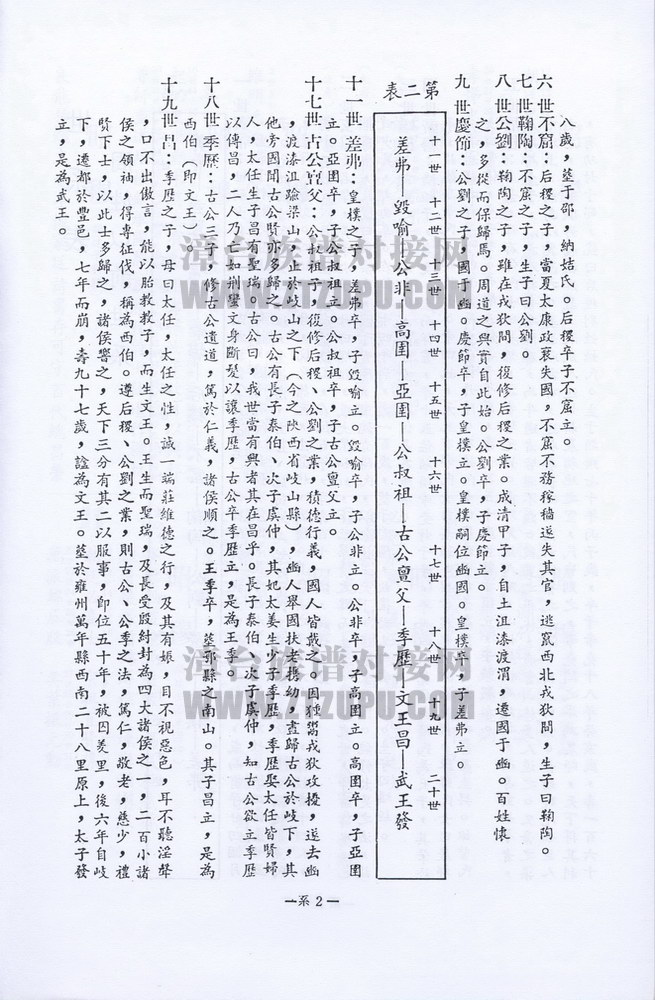 八歲，葬于邰，納姞氏。后稷卒子不窋立。
六世不窋：后稷之子，當夏太康政衰失國，不窋不務稼穡遂失其官，逃竄西北戎狄間，生子曰鞠陶。
七世鞠陶：不窋之子，生子曰公劉。
八世公劉：鞠陶之子，雖在戎狄間，復修后稷之業。成清甲子，自土沮漆渡渭，遷國于豳。百姓懷
之，多從而保歸焉。周道之興實自此始。公劉卒，子慶節立。
九世慶節：公劉之子，國于豳。慶節卒，子皇樸立。皇樸嗣位豳國。皇樸卒，子差弗立。
第二表
十一世 十二世 十三世 十四世 十五世 十六世 十七世 十八世 十九世 二十世
差弗—毀喻—公非—高圉—亞圉—公叔祖—古公亶父—季歷—文王昌—武王發
十一世差弗：皇樸之子，差弗卒，子毀喻立。毀喻卒，子公非立。公非卒，子高圉立。高圉卒，子亞圉
立。亞圉卒，子公叔祖立。公叔祖卒，子古公亶父立。
十七世古公亶父：公叔祖子，復修后稷、公劉之業，積德行義，國人皆戴之。因獯鬻戎狄攻擾，遂去豳
，渡漆沮踰梁山，止於岐山之下（今之陝西省岐山縣），豳人舉國扶老携幼，盡歸古公於岐下，其
他旁國聞古公賢亦多歸之。古公有長子泰伯、次子虞仲，其妃太姜生少子季歷，季歷娶太任皆賢婦
人，太任生子昌有聖瑞。古公曰，我世當有興者其在昌乎。長子泰伯、次子虞仲，知古公欲立季歷
以傳昌，二人乃亡如荆蠻文身斷髮以讓季歷，古公卒季歷立，是為王季。
十八世季歷：古公三子，修古公遺道，篤於仁義，諸侯順之。王季卒，葬鄠縣之南山。其子昌立，是為
西伯（即文王）。
十九世昌：季歷之子，母曰太任，太任之性，誠一端莊維德之行，及其有娠，目不視惡色，耳不聽淫聲
，口不出傲言，能以胎教教子，而生文王。王生而聖瑞，及長受殷紂封為四大諸侯之一，二百小諸
侯之領袖，得專征伐，稱為西伯。遵后稷、公劉之業，則古公、公季之法，篤仁，敬老，慈少，禮
賢下士，以此士多歸之，諸侯嚮之，天下三分有其二以服事，即位五十年，被囚羑里，後六年自岐
下，遷都於豐邑，七年而崩，壽九十七歲，諡為文王。葬於雍州萬年縣西南二十八里原上，太子發
立，是為武王。
—系2—
漳台族谱对接网
WWW.ZTZUPU.COM
漳台族谱对接网
WWW.ZTZUPU.COM